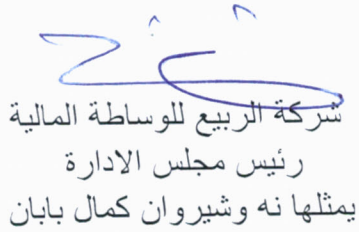 شركة الربيع للوساطة المالية
رئيس مجلس الادارة
يمثلها نه وشيروان كمال بابان